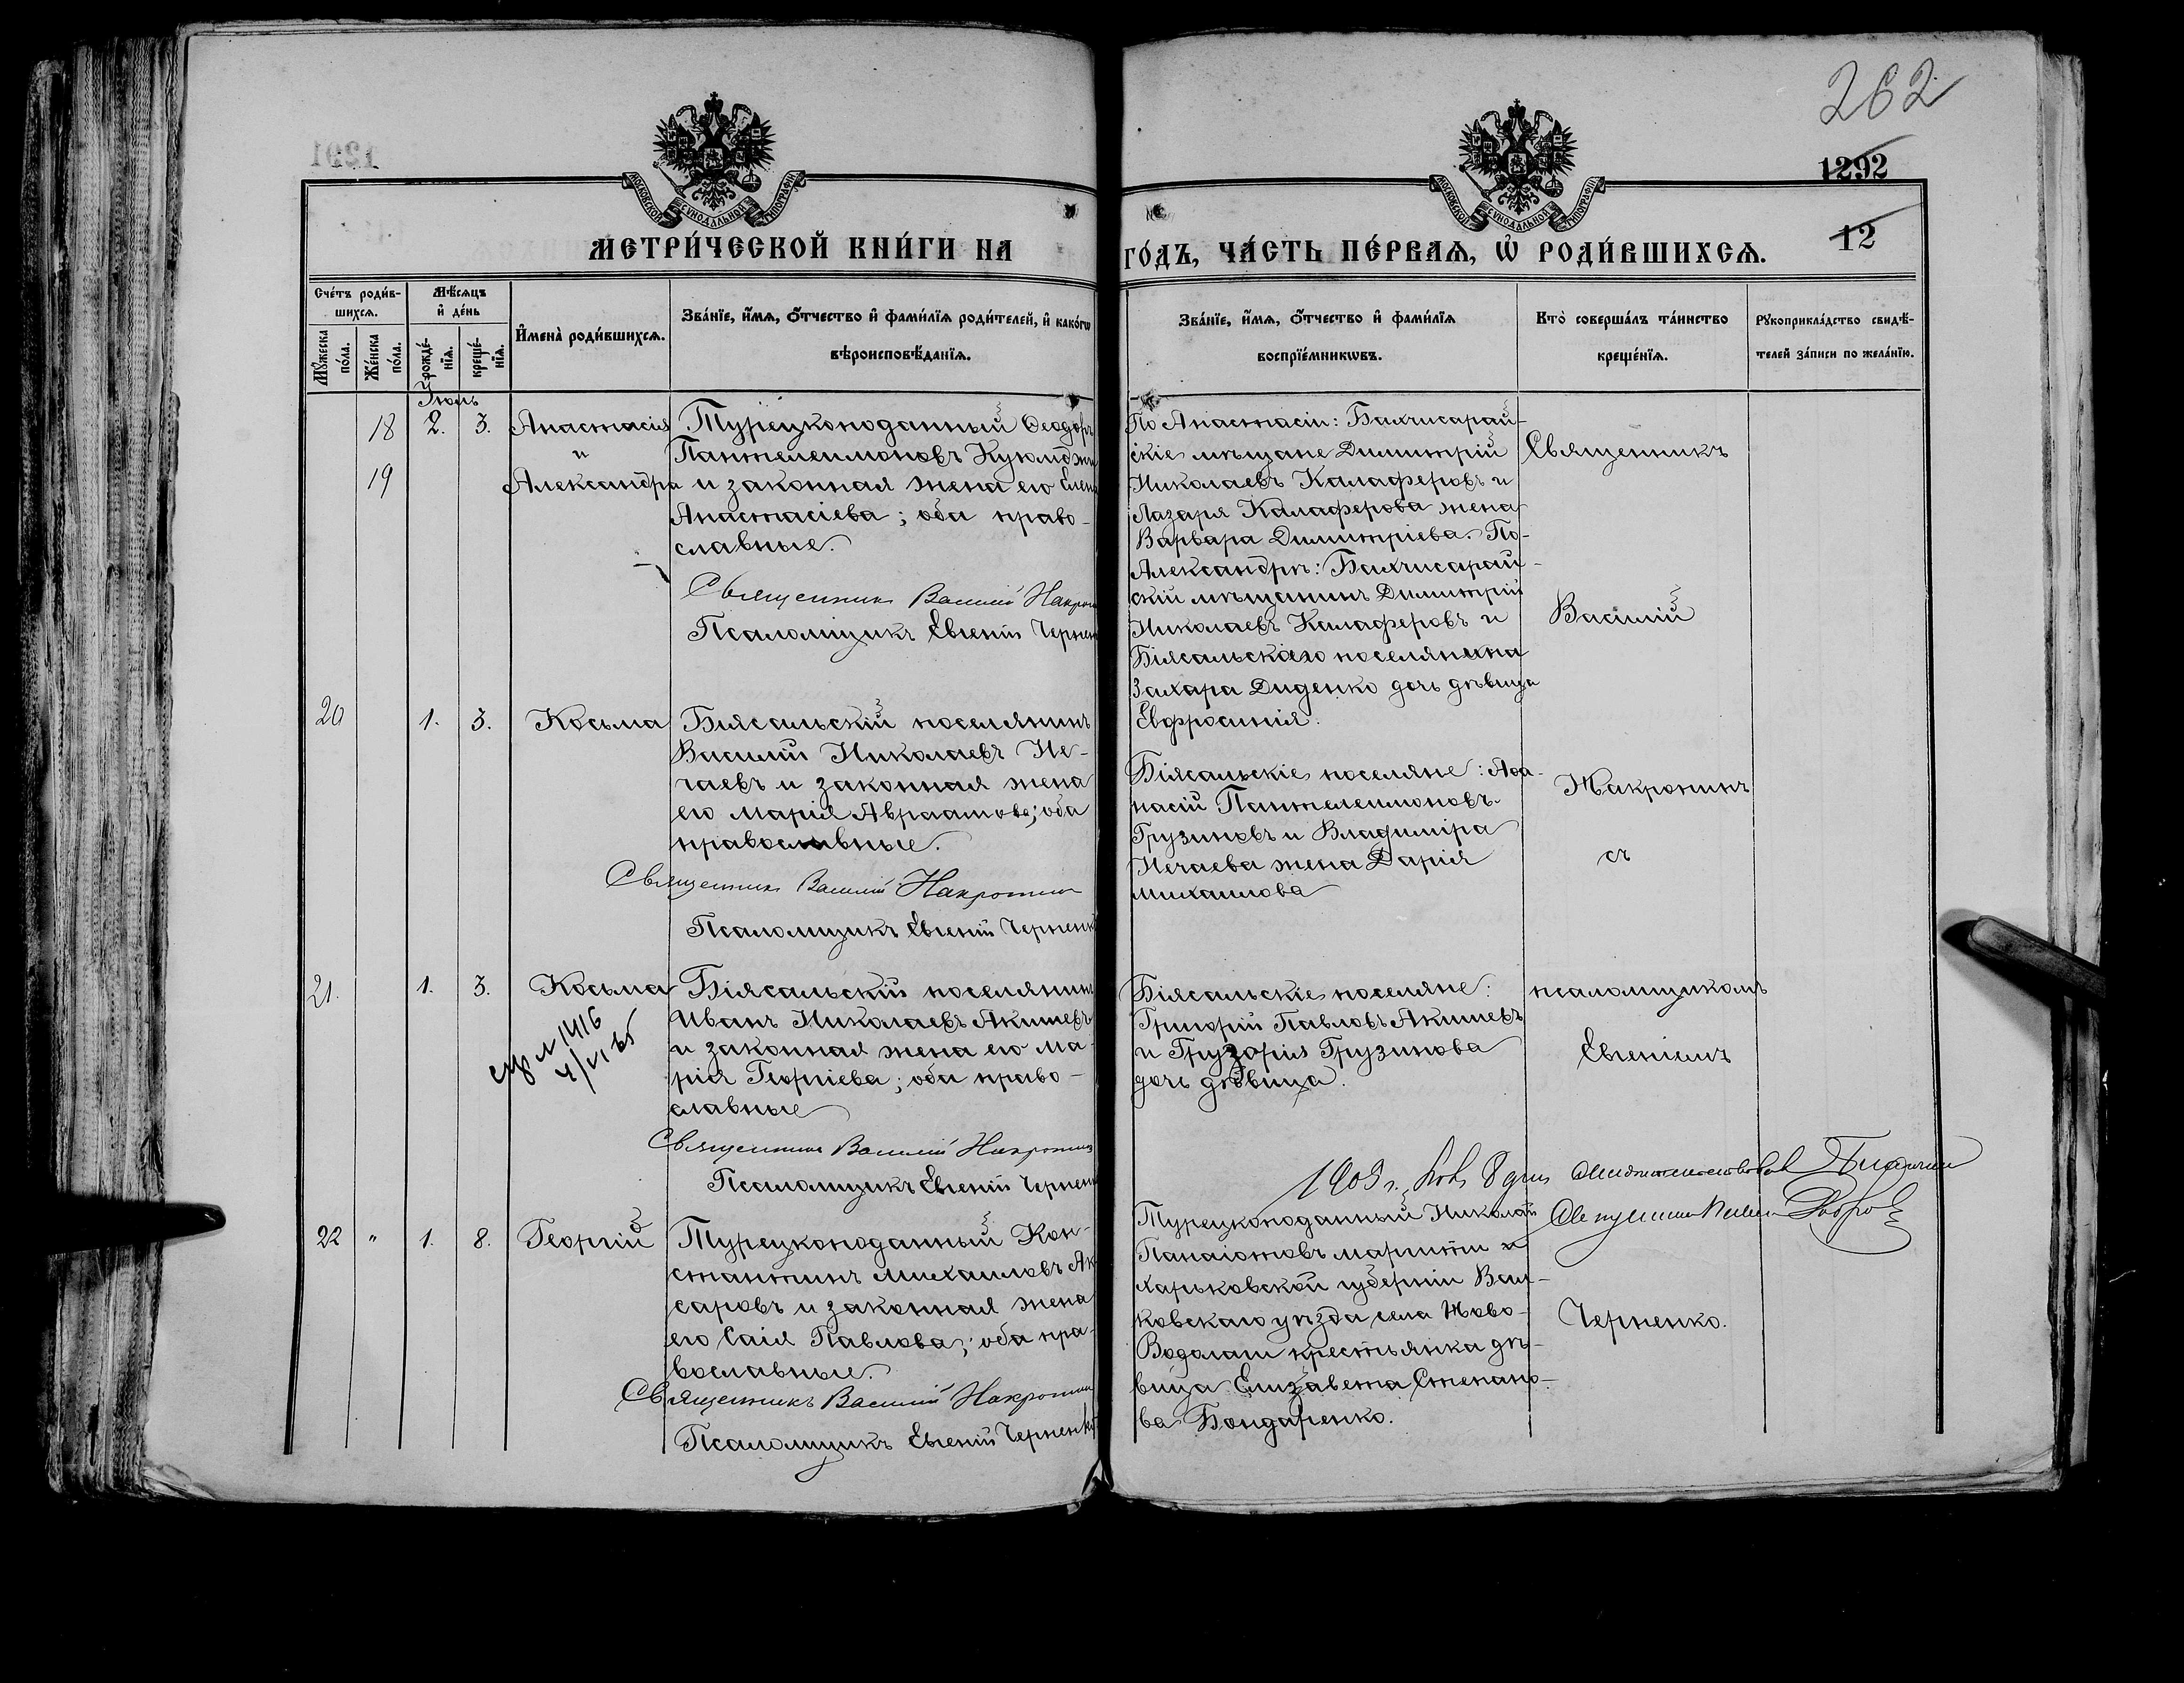 262
1291
1292
12
МОСКОВСКОЙ СѴНОДАЛЬНОЙ ТИПОГРАФІИ
МОСКОВСКОЙ СѴНОДАЛЬНОЙ ТИПОГРАФІИ
МЕТРИ́ЧЕСКОЙ КНИ́ГИ НА
ГО́ДЪ, ЧА́СТЬ ПЕ́РВАѦ, Ѡ҆ РОДИ́ВШИХСѦ.
Сче́тъ роди́в-
шихсѧ.
Мꙋ́жеска по́ла.
Же́нска по́ла.
Мѣ́сѧцъ и҆ де́нь
рожде́-нїѧ.
креще́-нїѧ.
И҆мена̀ роди́вшихсѧ.
Зва́нїе, и҆́мѧ, ѻ҆́тчество и҆ фами́лїѧ роди́телей, и҆ како́гѡ
вѣроисповѣ́данїѧ.
Зва́нїе, и҆́мѧ, ѻ҆́тчество и҆ фами́лїѧ
воспрїе́мникѡвъ.
Кто̀ соверша́лъ та́инство
креще́нїѧ.
Рꙋкоприкла́дство свидѣ́-
телей за́писи по жела́нїю.
Іюль
18 2. 3. Анастасія
и
19 Александра
Турецкоподанный Ѳеодоръ
Пантелеимоновъ
и законная жена его Елена
Анастасіева; оба право-
славные.
Священникъ Василій Накропинъ
Псаломщикъ Евгеній Черненко
По Анастасіи: Бахчисарай-
скіе мѣщане Димитрій
Николаевъ Калаферовъ и
Лазаря Калаферова жена
Варвара Димитріева. По
Александрѣ: Бахчисарай-
скій мѣщанинъ Димитрій
Николаевъ Калаферовъ и
Біясальскаго поселянина
Захара Диденко дочь дѣвица
Евфросинія.
20 1. 3. Косьма
Біясальскій поселянинъ
Василій Николаевъ Не-
чаевъ и законная жена
его Марія Авраамова; оба
православные.
Священникъ Василій Накропинъ
Псаломщикъ Евгеній Черненко
Біясальскіе поселяне: Аѳа-
насій Пантелеимоновъ
Грузиновъ и Владиміра
Нечаева жена Дарія
Михаилова
21. 1. 3. Косьма
1416
Біясальскій поселянинъ
Иванъ Николаевъ Акишевъ
и законная жена его Ма-
рія Георгіева; оба право-
славные
Священникъ Василій Накропинъ
Псаломщикъ Евгеній Черненко
Біясальскіе поселяне:
Григорій Павловъ Акишевъ
и Грузинова
дочь дѣвица.
22 " 1. 8. Георгій
Турецкоподанный Кон-
стантинъ Михаиловъ Ак-
саровъ и законная жена
его Саія Павлова; оба пра-
вославные.
Священникъ Василій Накропинъ
Псаломщикъ Евгеній Черненко
Турецкоподанный Николай
Панаіотовъ и
Харьковской губерніи Вал-
ковскаго уѣзда села Ново-
Водолаги крестьянка дѣ-
вица Елизавета Степано-
ва Бондаренко.
Священникъ
Василій
Накропинъ
съ
псаломщикомъ
Евгеніемъ
Черненко.